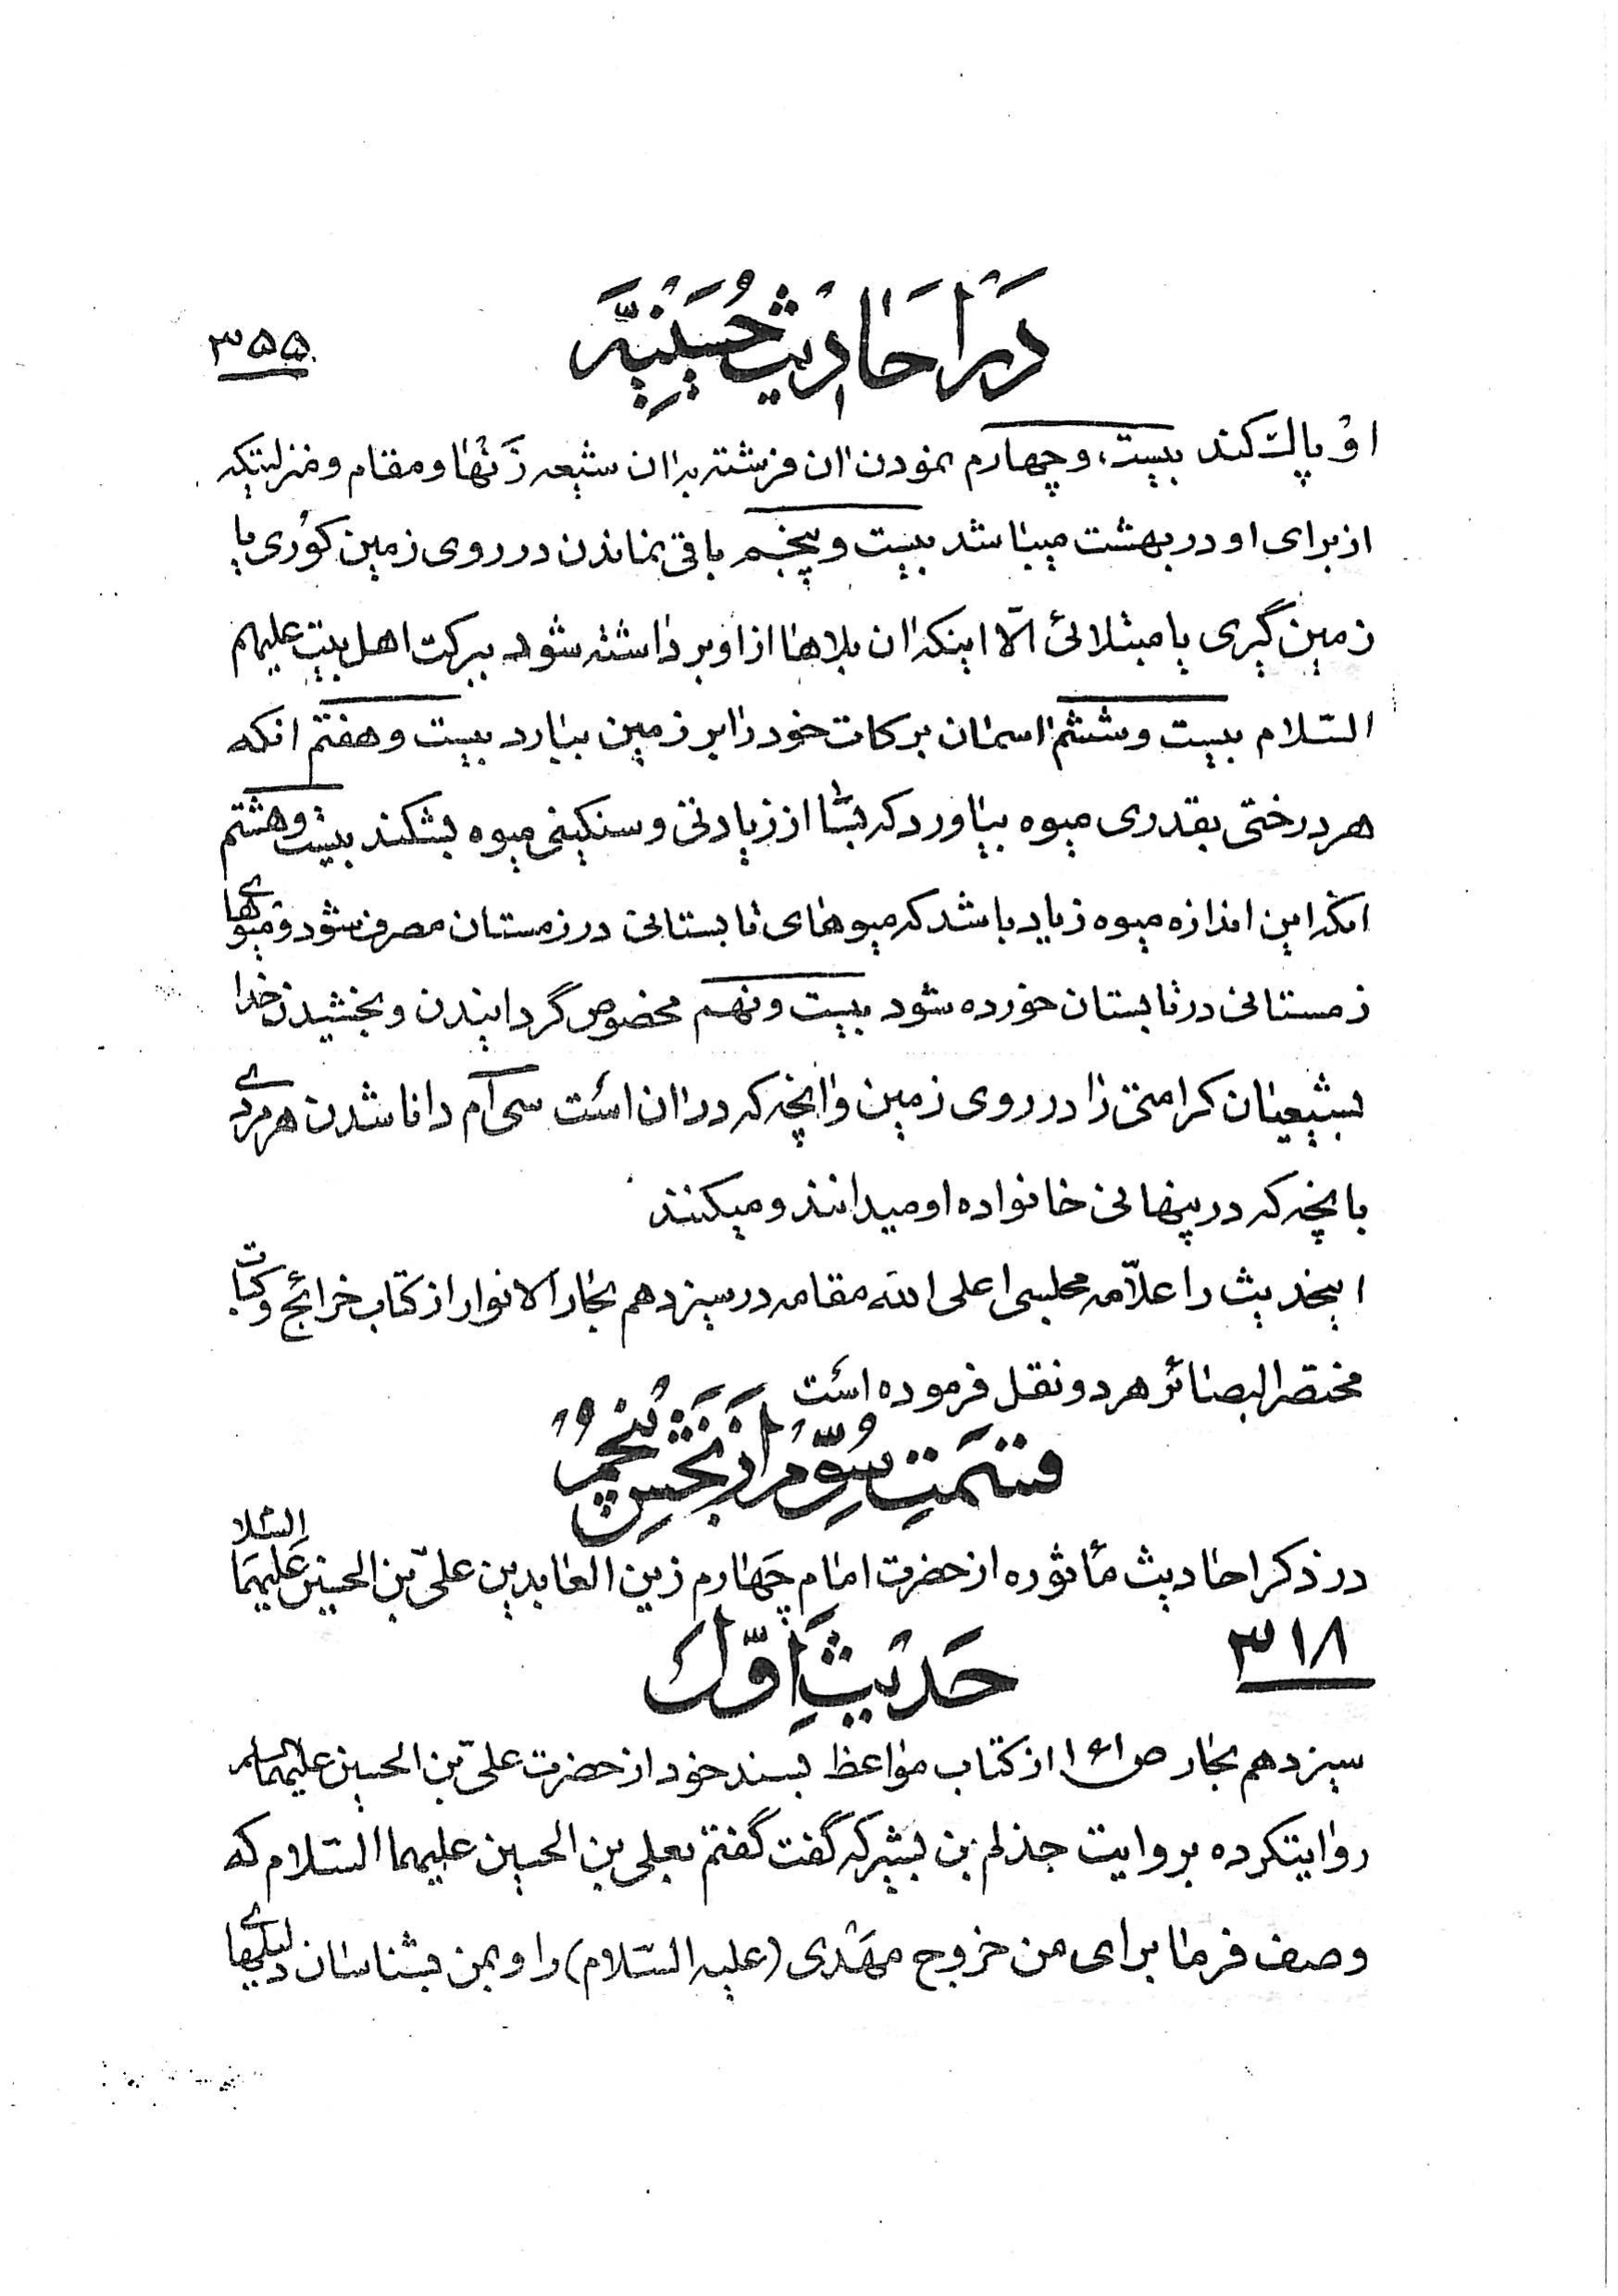 در احادیث حسینیه
۳۵۵
او پاک کند بیست و چهارم نمودن ان فرشته به ان شیعه زنها و مقام و منزلتیکه
از برای او در بهشت میباشد بیست و پنجم باقی نماندن در روی زمین کوری یا
زمین گیری یا مبتلائی الّا اینکه ان بلاها از او برداشته شود ببرکت اهل بیت علیهم
السّلام بیست و ششم اسمان برکات خود را بر زمین ببارد بیست و هفتم انکه
هر درختی بقدری میوه بیاورد که بسا از زیادتی و سنکینی میوه بشکند بیست و هشتم
انکه این اندازه میوه زیاد باشد که میوهای تابستانی در زمستان مصرف شود و میوهای
زمستانی در تابستان خورده شود بیست و نهم مخصوص گردانیدن و بخشیدن خدا
بشیعیان کرامتی را در روی زمین و انچه که در ان است سی ام دانا شدن هر مردی
بانچه که در پنهانی خانواده او میدانند و میکنند
اینحدیث را علّامه مجلسی اعلی الله مقامه در سیزدهم بحار الانوار از کتاب خرائج و کتاب
مختصر البصائر هر دو نقل فرموده است
قسمت سوّم از بخش پنجم
در ذکر احادیث مأثوره از حضرت امام چهارم زین العابدین علیّ بن الحسین علیهما السّلا
۳۱۸
حدیث اوّل
سیزدهم بحار ص ۱۶۱ از کتاب مواعظ بسند خود از حضرت علیّ بن الحسین علیهما السلم
روایتکرده بروایت جذلم بن بشیر که گفت گفتم بعلی بن الحسین علیهما السّلام که
وصف فرما برای من خروج مهدی (علیه السّلام) را و بمن بشناسان دلیلهای